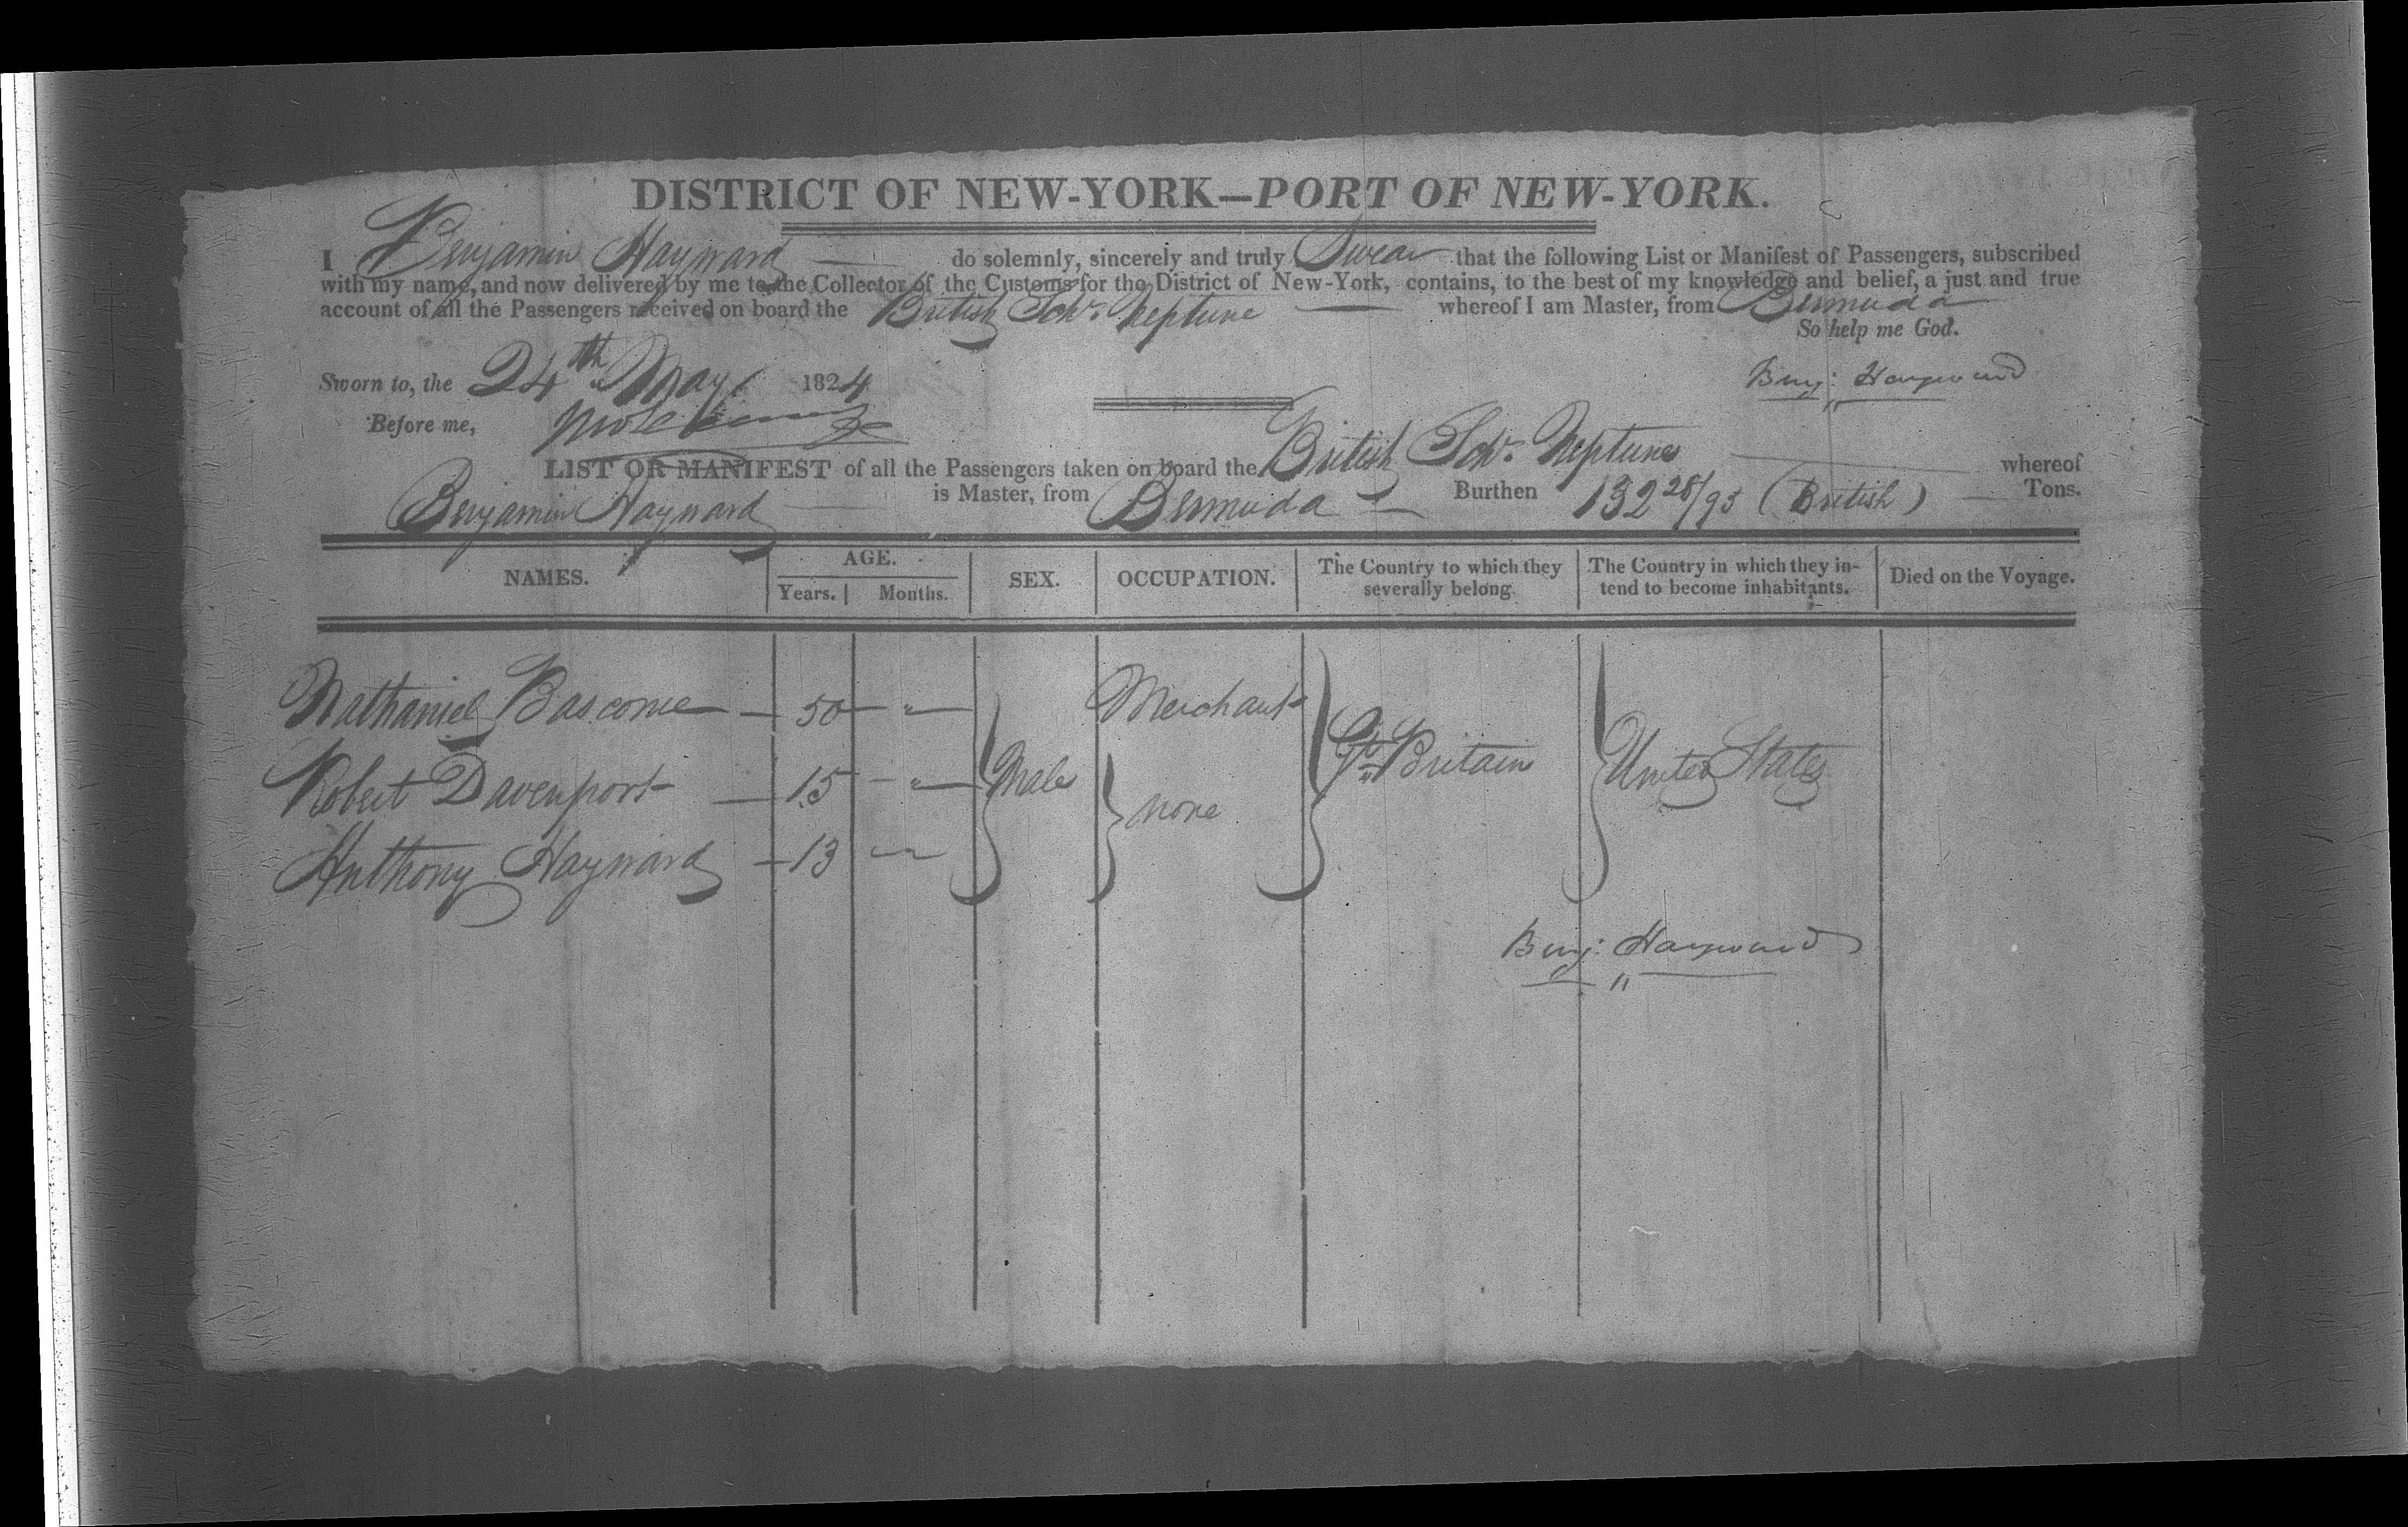 DISTRICT OF NEW-YORK—PORT OF NEW-YORK.
I Benjamin Hayward — do solemnly, sincerely and truly Swear that the following List or Manifest of Passengers, subscribed
with my name, and now delivered by me to the Collector of the Customs for the District of New-York, contains, to the best of my knowledge and belief, a just and true
account of all the Passengers received on board the British Schr. Neptune — whereof I am Master, from Bermuda
So help me God.
Sworn to, the 24th May 1824
Benj: Hayward
Before me,
LIST OR MANIFEST of all the Passengers taken on board the British Schr. Neptune — whereof
Benjamin Hayward — is Master, from Bermuda — Burthen 132 28/95 (British) — Tons.
NAMES. AGE. SEX. OCCUPATION. The Country to which they severally belong. The Country in which they intend to become inhabitants. Died on the Voyage.
Years. Months.
Nathaniel Bascome — 50 — " — Merchant
Robert Davenport — 15 — " — Male none Gt. Britain United States
Anthony Hayward — 13 — " —
Benj: Hayward